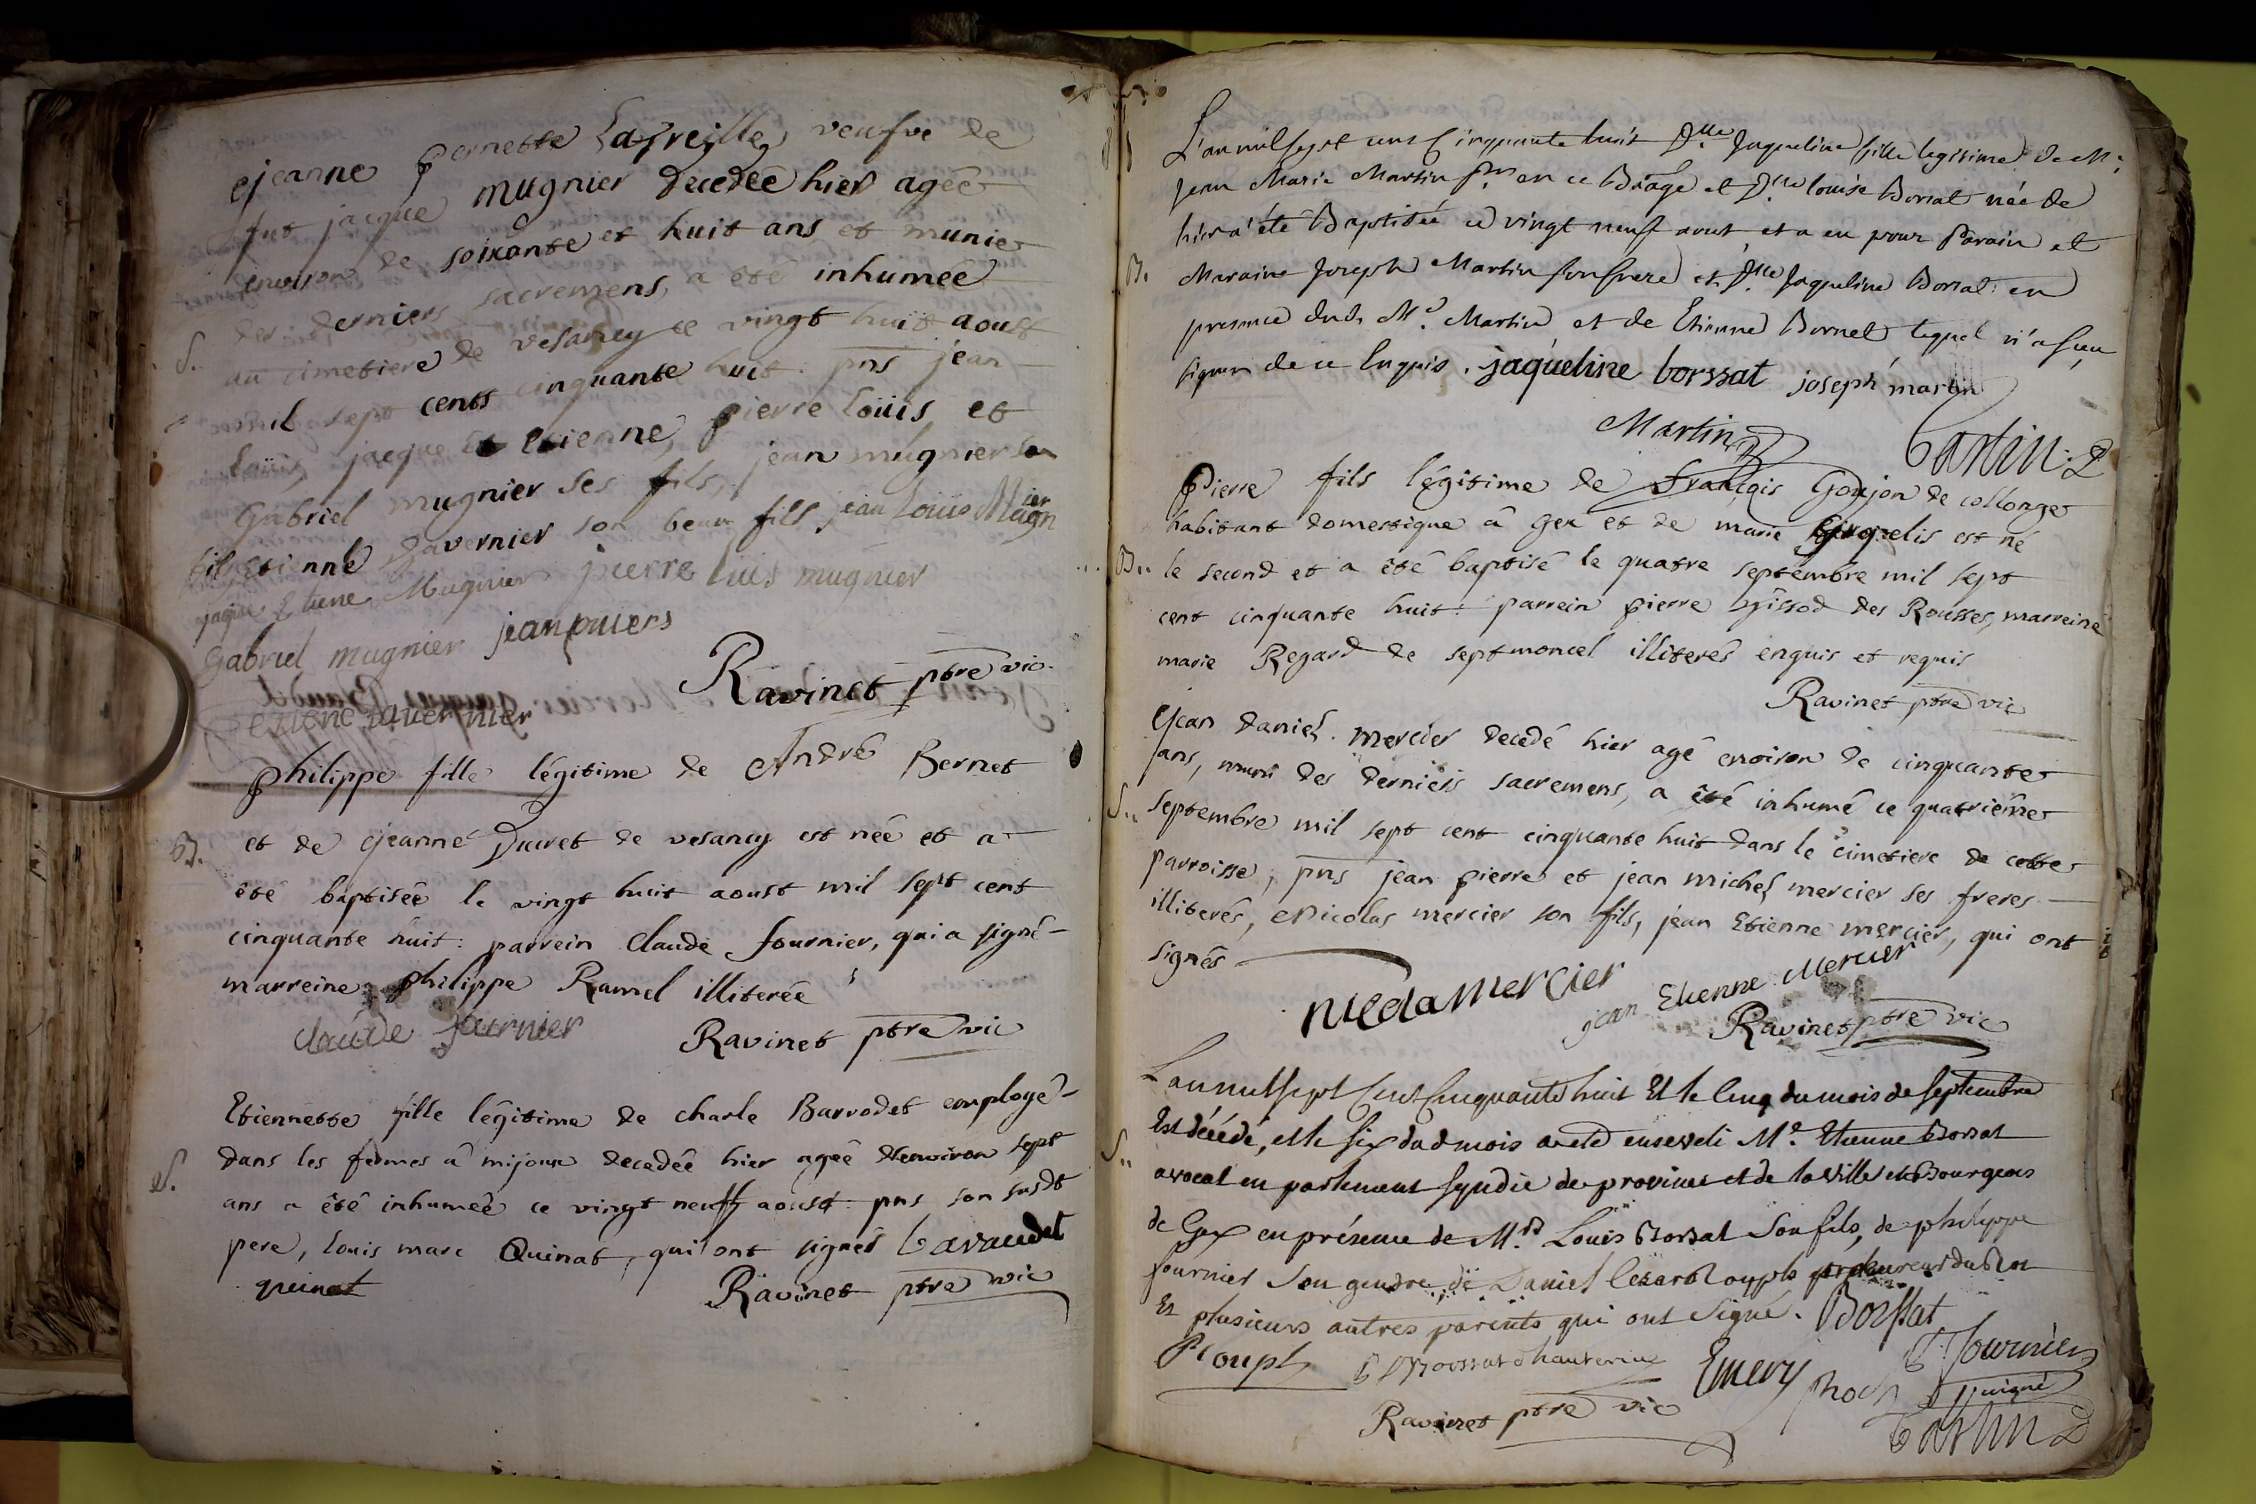 jeanne pernette Lapreille veufve de
fut jacque mugnier decedée hier agée
environ de soixante et huit ans et munie
des derniers sacremens, a été inhumée
S.
au cimetiere de vesancy ce vingt huit aoust
mil sept cents cinquante huit: pns jean
Louis, jacque et etienne, pierre loüis et
Gabriel mugnier ses fils, jean mugnier son
fils etienne tavernier son beau fils jean Louis Mugnier
jaque Etiene Mugnier pierre luis mugnier
Gabriel mugnier jean
Ravinet ptre vic.
etiene tavernier
philippe fille légitime de André Bernet
B.
et de jeanne Ducret de vesancy est née et a
été baptisée le vingt huit aoust mil sept cent
cinquante huit: parrein Claude fournier, qui a signé
marreine philippe Ramel illiterée
claude fournier Ravinet ptre vic
Etiennette fille légitime de charle Barrodet employé
S.
dans les fermes à mijoux decedée hier agée d'environ sept
ans a été inhumée ce vingt neuff aoust: pns son susdt
pere, louis marc Quinat, qui ont signés
quinat Ravinet ptre vic
L'an mil sept cent Cinquante huit Dlle. Jaqueline fille legitime de Mr.
Jean Marie Martin en ce Bliage et Dlle. louise Borsat née de
hier a été Baptisée ce vingt neuf aout, et a eu pour Parain et
B.
Maraine Joseph Martin son frere et Dlle Jaqueline Borsat en
presence dud. Mr. Martin et de Etienne Burnet lequel n'a sceu
signer de ce Enquis. jaqueline borssat joseph martin
Martin
Castin
Pierre fils légitime de françois Goujon de collonge
habitant domestique à Gex et de marie est né
B..
le second et a été baptisé le quatre septembre mil sept
cent cinquante huit: parrein pierre des Rousses, marreine
marie Regard de septmoncel illiterés enquis et requis
Ravinet ptre vic
Jean daniel mercier decedé hier agé environ de cinquante
ans, muni des derniers sacremens, a été inhumé ce quatrième
S..
septembre mil sept cent cinquante huit dans le cimetiere de cette
parroisse, pns jean pierre et jean michel mercier ses freres
illiterés, Nicolas mercier son fils, jean Etienne mercier, qui ont
signés
nicola mercier jean Etienne Mercier
Ravinet ptre vic
L'an mil sept Cent Cinquante huit Et le Cinq du mois de septembre
Est décédé, et le six dud mois a eté enseveli Me. Etienne Borsat
S..
avocat en parlement syndic de province et de la ville et Bourgeois
de Gex en présence de Mr. Louis Borsat son fils, de philippe
fournier son gendre, de Daniel Cezard Rouph procureur du Roi
Et plusieurs autres parents qui ont signé. Borssat
Rouph Borssat d'hauterive Emery Roch P. fournier
Ravinet ptre vic
Castin